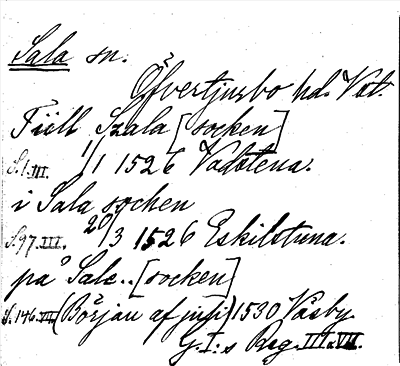 Sala sn.
Öfvertjurbo hd. Vstl.
Tiill Szala [socken]
S.1.III. 1/1 1526 Vadstena.
i Sala sochen
S.97.III. 20/3 1526 Eskilstuna.
på Sale.. [socken]
S.146.VII. (Början af juni) 1530 Våsby.
G.I:s Reg. III o. VII.